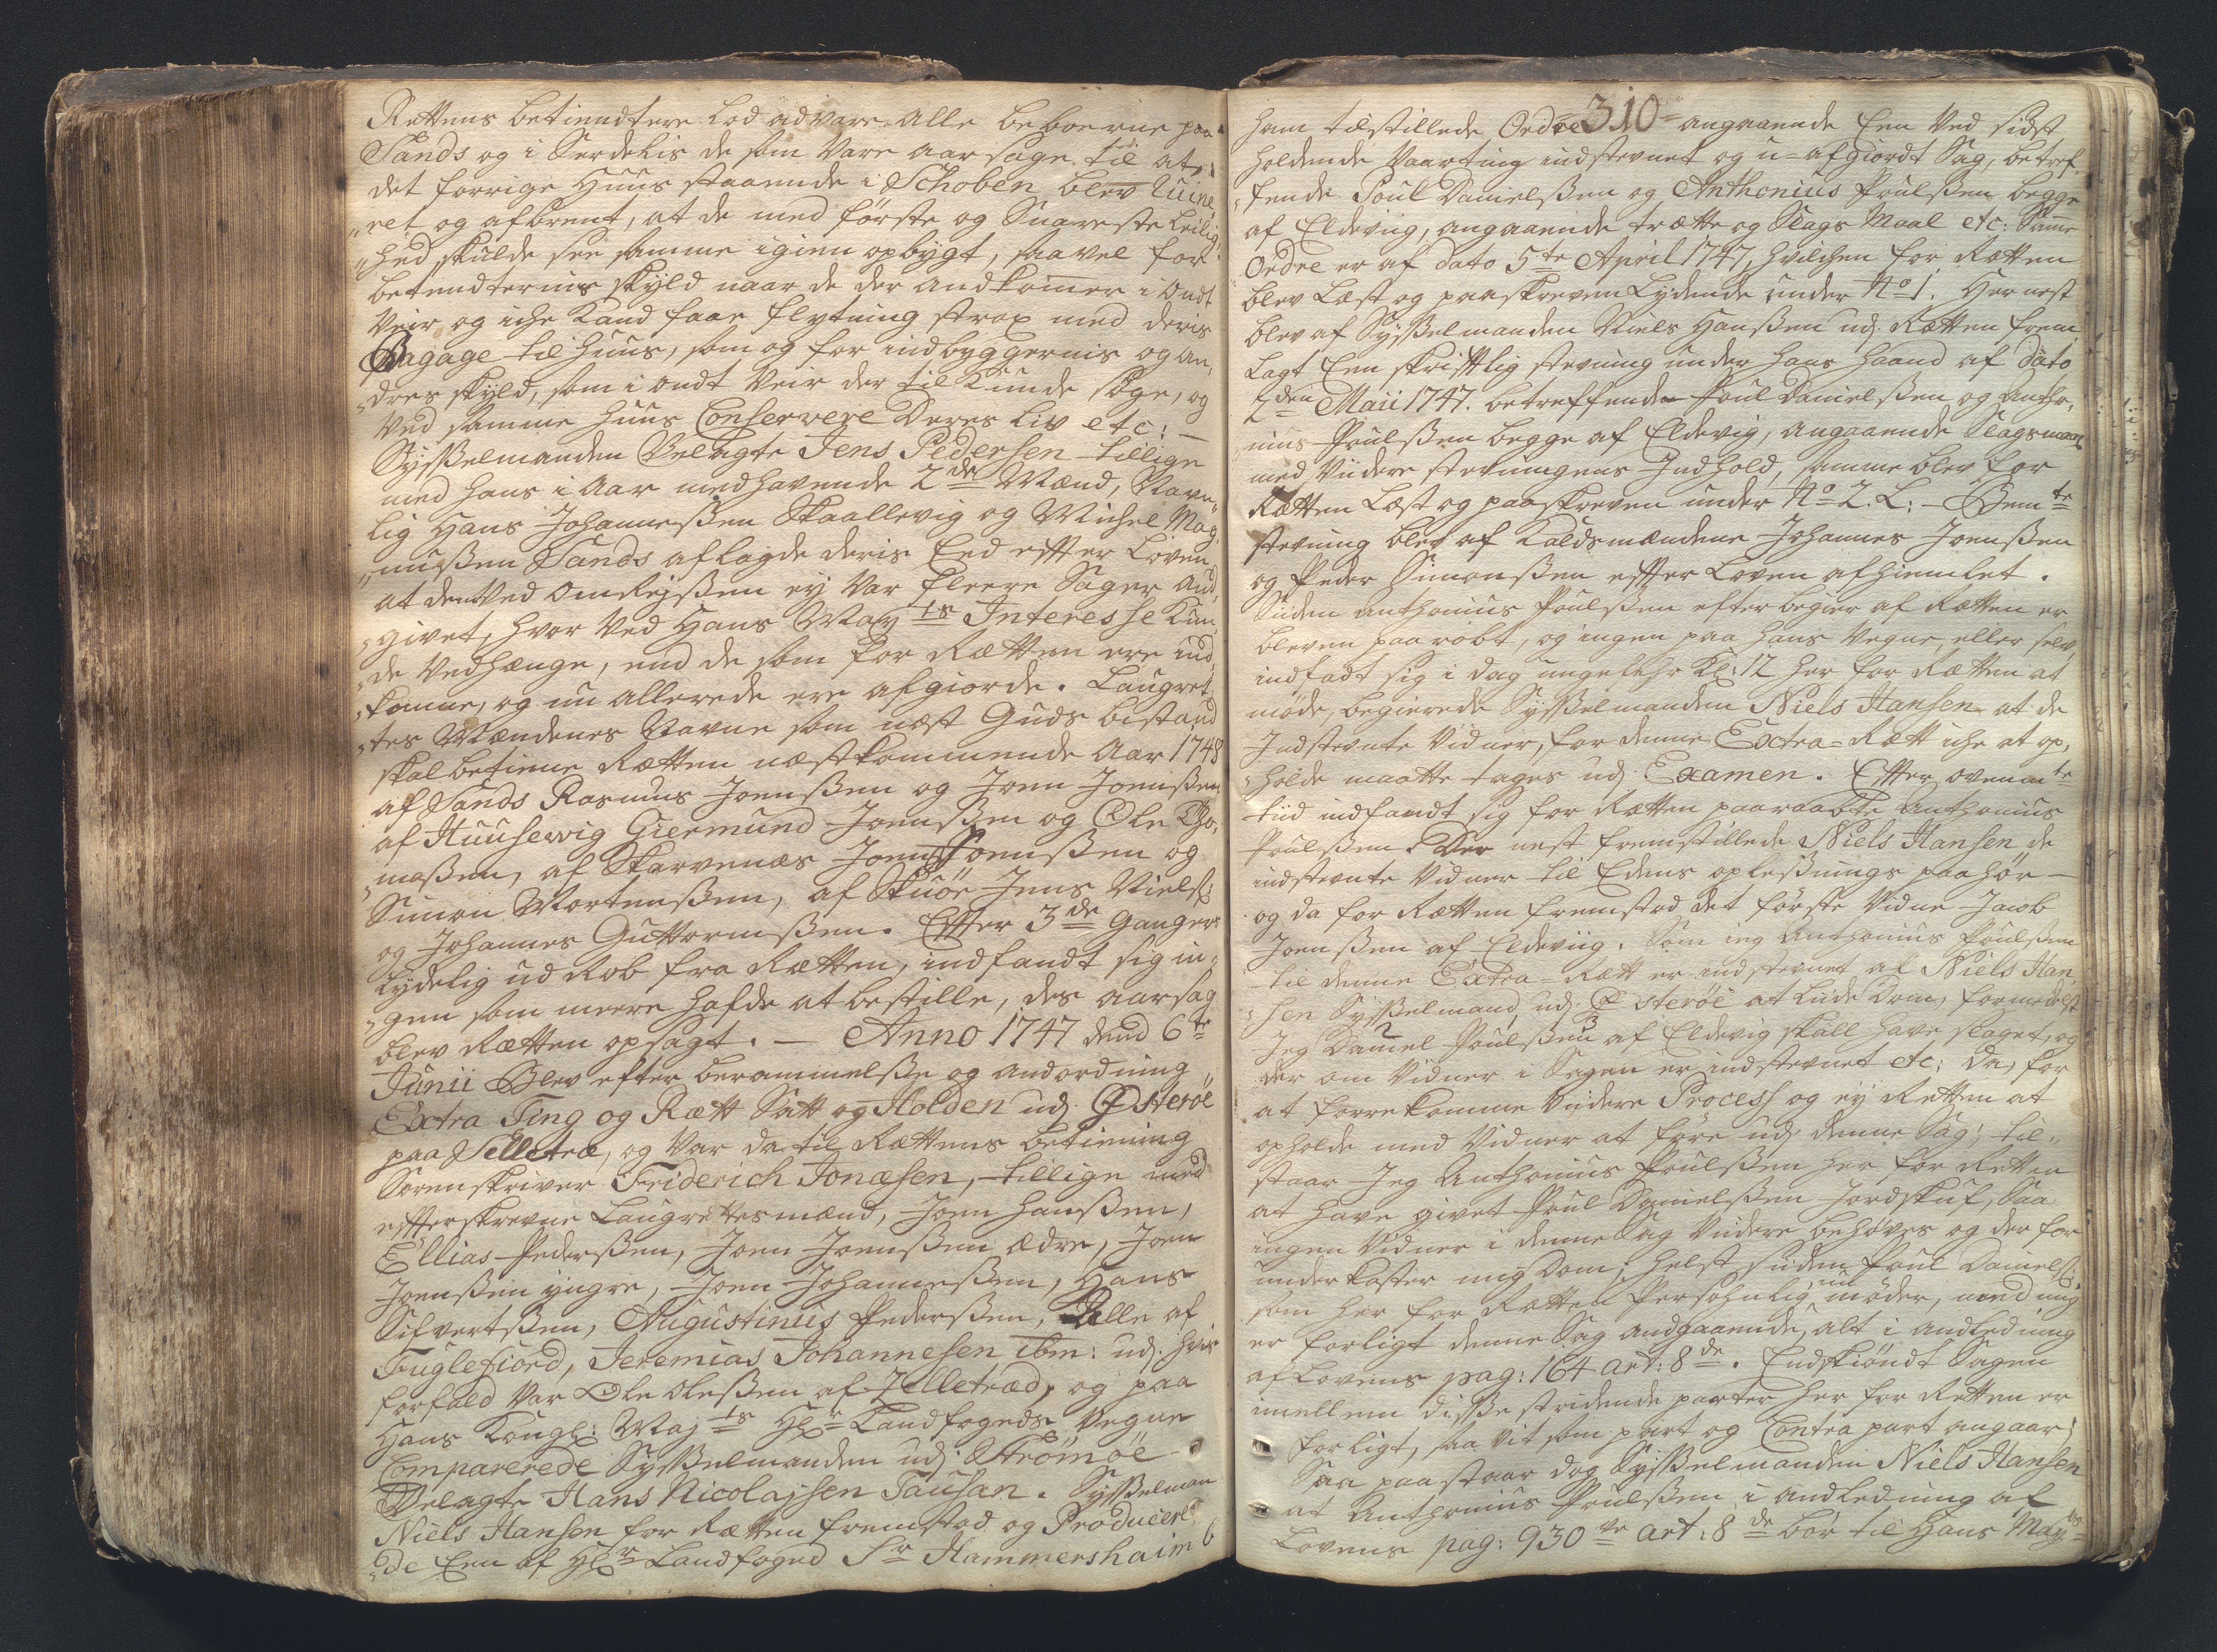 Rettens betiendtere lod advare alle beboerne paa
Sands og i Serdelis de som vare aarsage til at
det forrige Huus staaende i Schoben blev ruine¬
„ret og afbrent, at de med første og Snareste Leilig¬
„hed skulde see samme igien opbygt, saa vel for
betiendternis skyld naar de der andkommer i ondt
Veir og iche kand faae flytning strax med deris
Bagage til Huus, som og for indbyggernis og an¬
„dres skyld, som i ondt Veir der til kunde søge, og
ved samme Huus Conservere Deres liv etc: —
Sysselmanden Velagte Jens Pedersen tillige
med hans i Aar medhavende 2de Mænd, Navn¬
lig Hans Johannessen Skaallevig og Michel Mag¬
„nussen Sands aflagde deris Eed efter Loven
at den ved omRejssen ey var fleere Sager and¬
„givet, hvor ved Hans May.ts Interesse kun¬
„de vedhænge, end de som for Rætten ere ind¬
„komne, og nu allerede ere afgiorde. Laugret¬
„tes Mændenes Navne som næst Guds bistand
skal betiene Rætten næstkommende Aar 1748
af Sands Rasmus Joenssen og Joen Joenssen
af Huusewig Giermund Joenssen og Ole Tho¬
„massen, af Skarvenæs Joen Joenssen og
Simon Mortenssen, af Skuøe Jens Niels:
og Johannes Guttormssen. Efter 3de Ganger
lydelig ud Rob fra Rætten, indfandt sig in¬
„gen som meere hafde at bestille, des aarsag
blev Rætten opsagt. — Anno 1747 dend 6te
Junii Blev efter berammelsse og andordning
Extra Ting og Rætt Satt og Holden udj Østerøe
paa Selletræ, og var da til Rættens betiening
Sorenskriver Friderich Jonæsen, tillige med
efterskrevne Laugrettesmænd, Joen Hanssen,
Ellias Pederssen, Joen Joenssen ældre, Joen
Joenssen yngre, Joen Johannessen, Hans
Sifvertssen, Augustinus Pederssen, Alle af
Fuglefiord, Jeremias Johannesen ibm: udj hvis
forfald var Ole Olessen af Selletræd, og paa
Hans Kongl: May.ts Hr. Landfogeds Vegne
Comparerede Sysselmanden udj Strømøe
Velagte Hans Nicolajsen Tausan. Sysselman
Niels Hansen for Rætten fremstod og Producere¬
„de Een af Hr. Landfoged Sr. Hammershaimb
310
ham tilstillede Ordre angaaende Een ved sidst
holdende Vaarting indstevnet og u-afgiordt Sag, betref¬
„fende Poul Danielssen og Anthonius Poulssen begge
af Eldeviig, angaaende trætte og Slags Maal etc: Samme
Ordre er af dato 5te April 1747, hvilchen for Rætten
blev Læst og paaskreven Lydende under No 1. Her nest
blev af Sysselmanden Niels Hanssen udj Rætten frem¬
Lagt Een skriftlig stevning under hans Haand af dato
2den Maii 1747. betreffende Poul Danielssen og Antho¬
nius Poulssen begge af Eldevig, angaaende Slagsmaal
med viidere stevningens Indhold, samme blev for
Rætten Læst og paaskreven under No 2. L: – Bemte
stevning blev af Kaldsmændene Johannes Joenssen
og Peder Simonssen efter Loven afhiemlet.
Siden Anthonius Poulssen efter begier af Rætten er
bleven paa robt, og ingen paa hans Vegne, eller selv,
indfadt sig i dag ungefehr Kl: 12 her for Rætten at
møde, begierede Sysselmanden Niels Hansen at de
Indstevnte Vidner, for denne Extra-Rætt iche at op¬
„holde maatte tages udj Examen. Efter ovenmte
tiid indfandt sig for Rætten paaraabte Anthonius
Poulssen. Der nest fremstillede Niels Hansen de
indstevnte Vidner til Edens oplessnings paahør —
og da for Rætten fremstod det første Vidne Jacob
Joenssen af Eldeviig. Som ieg Anthonius Poulssen
til denne Extra-Rætt er indstevnet af Niels Han¬
„sen Sysselmand udj Østerøe at liide Dom, formedelst
Jeg Daniel Poulssen af Eldevig skall have slaget, og
der om Vidner i Sagen er indstevnet etc: da, for
at forrekomme viidere Process og ey Retten at
opholde med Vidner at føre udj denne Sag, til¬
staar Jeg Anthonius Poulssen her for Retten
at have givet Poul Danielssen Jordskuf, Saa
ingen Vidner i denne Sag viidere behøves og der for
underkaster mig Dom; helst siden Poul Daniels:
som her for Rætten Persohnlig nu møder, med mig
er forligt denne Sag andgaaende, alt i andledning
af Lovens pag: 164 art: 8de. Endskiøndt Sagen
imellem disse stridende parter her for Retten er
forligt, saa vit som part og Contra part angaar;
Saa paastaar dog Sysselmanden Niels Hansen
at Anthonius Poulssen i andledning af
Lovens pag: 930 ve art: 8de bør til Hans May.ts